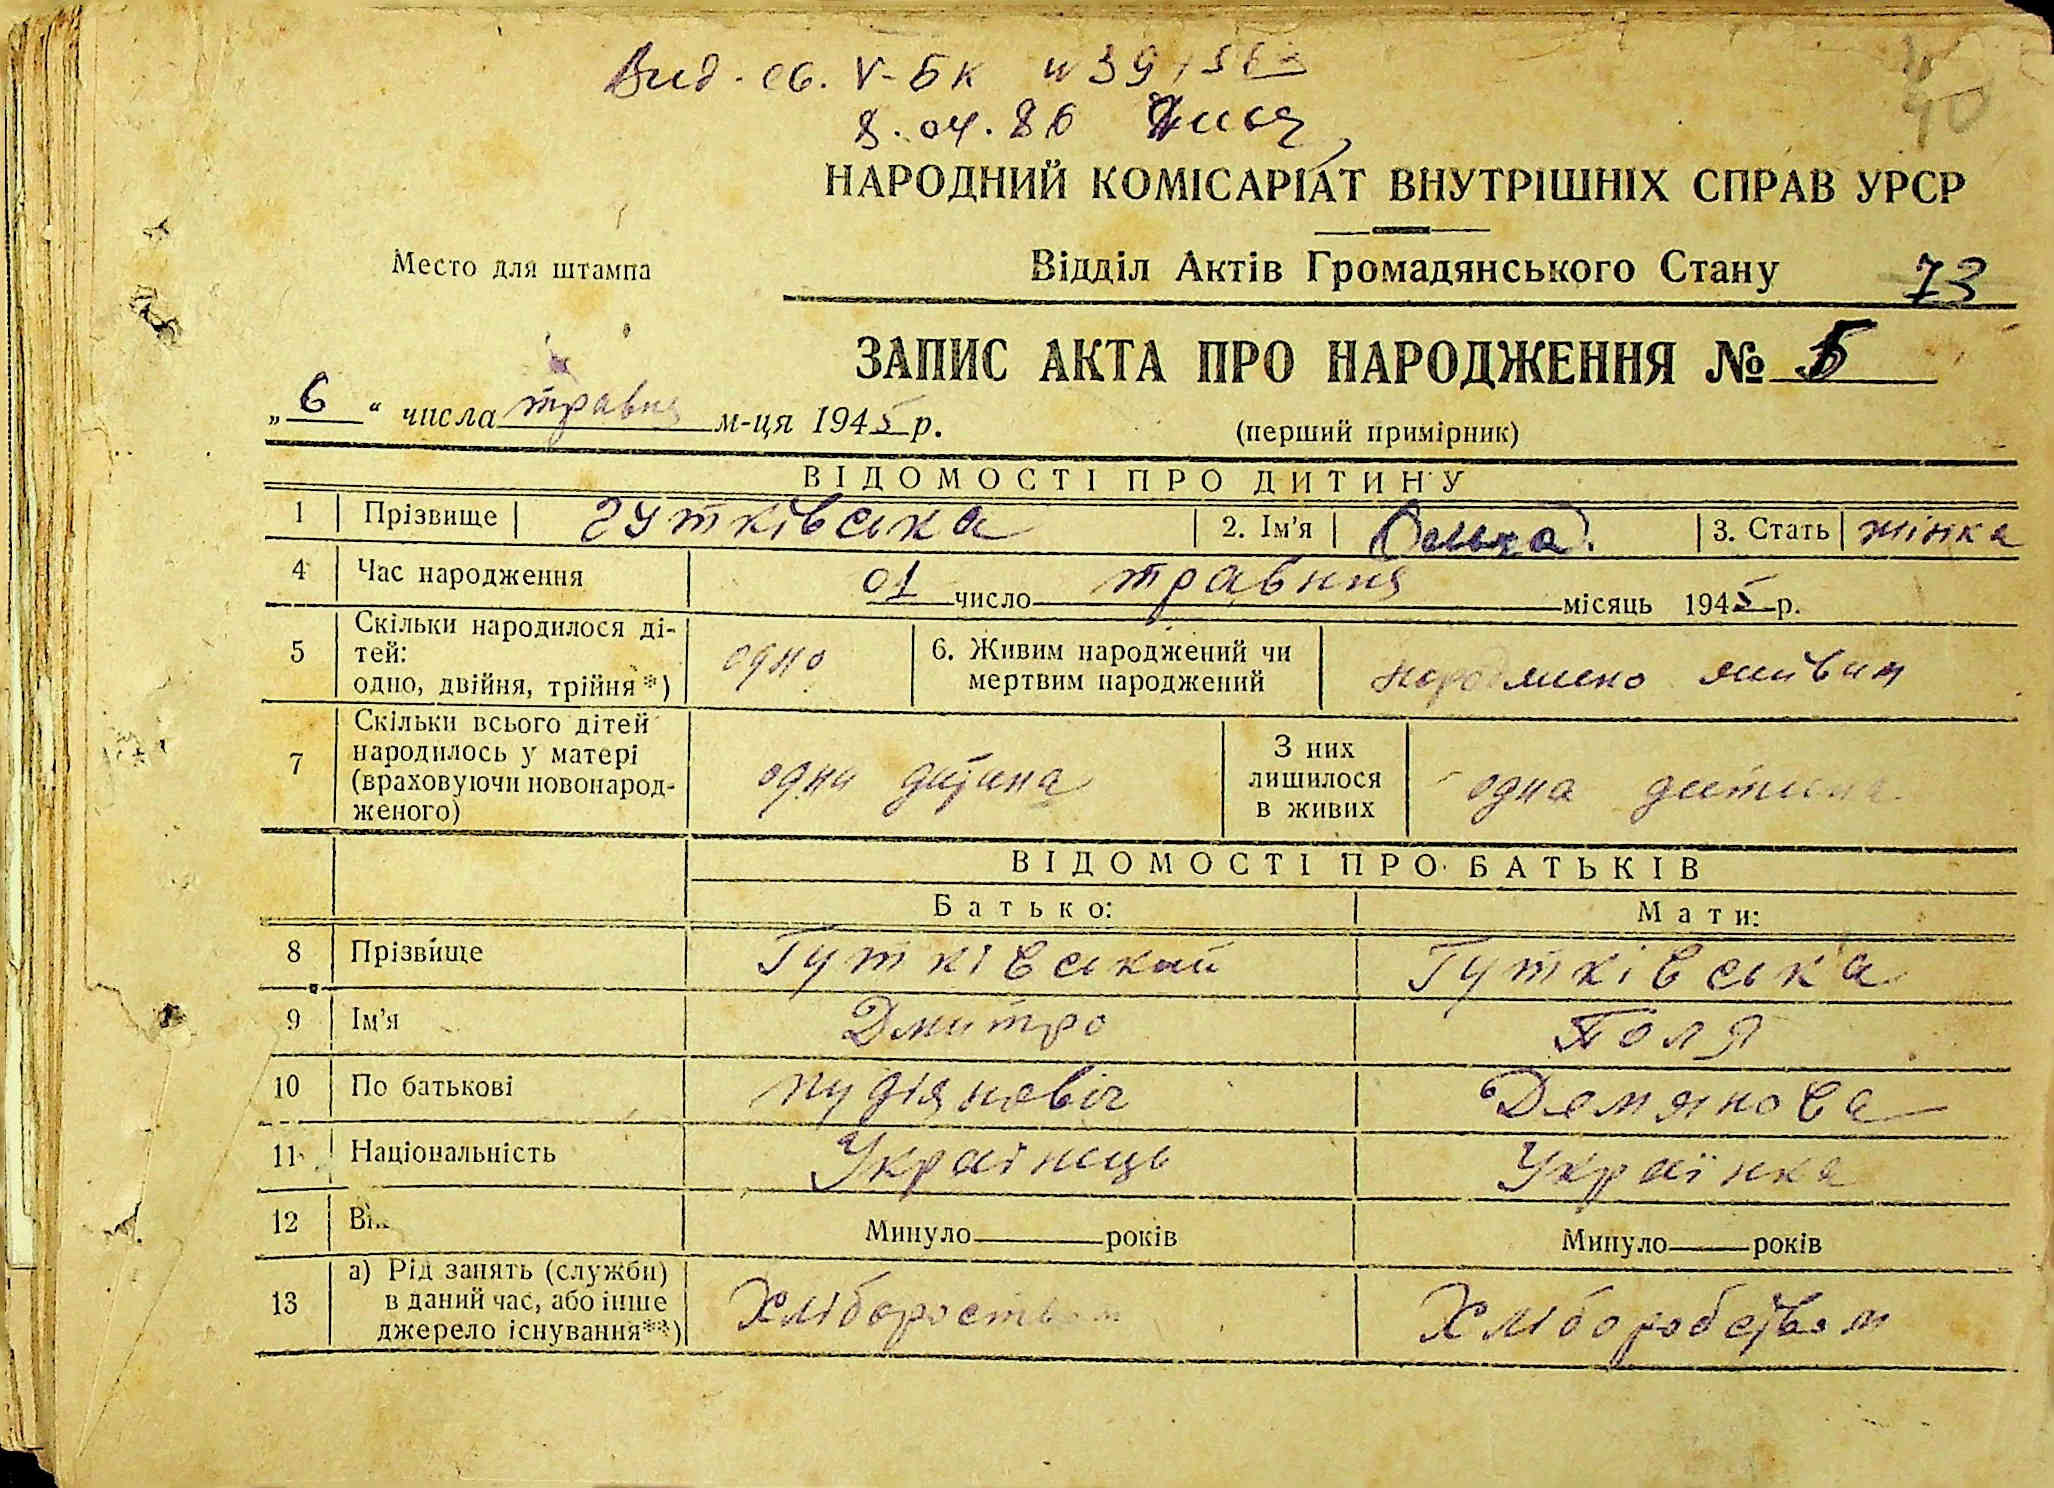 Вид. св. V-БК № 39
8.04.86
40
НАРОДНИЙ КОМІСАРІАТ ВНУТРІШНІХ СПРАВ УРСР
Место для штампа
Відділ Актів Громадянського Стану 73
ЗАПИС АКТА ПРО НАРОДЖЕННЯ № 5
„6“ числа травня м-ця 1945 р.
(перший примірник)
ВІДОМОСТІ ПРО ДИТИНУ
1 Прізвище Гутківська 2. Ім'я Ольга 3. Стать жінка
4 Час народження 01 число травня місяць 1945 р.
5 Скільки народилося ді-
тей:
одно, двійня, трійня*) одно 6. Живим народжений чи
мертвим народжений живим
7 Скільки всього дітей
народилось у матері
(враховуючи новонарод-
женого) одна дитина З них
лишилося
в живих одна дитина
ВІДОМОСТІ ПРО БАТЬКІВ
Батько: Мати:
8 Прізвище Гутківський Гутківська
9 Ім'я Дмитро Поля
10 По батькові Демянова
11 Національність Українець Українка
12 Минуло років Минуло років
13 а) Рід занять (служби)
в даний час, або інше
джерело існування**) Хліборобством